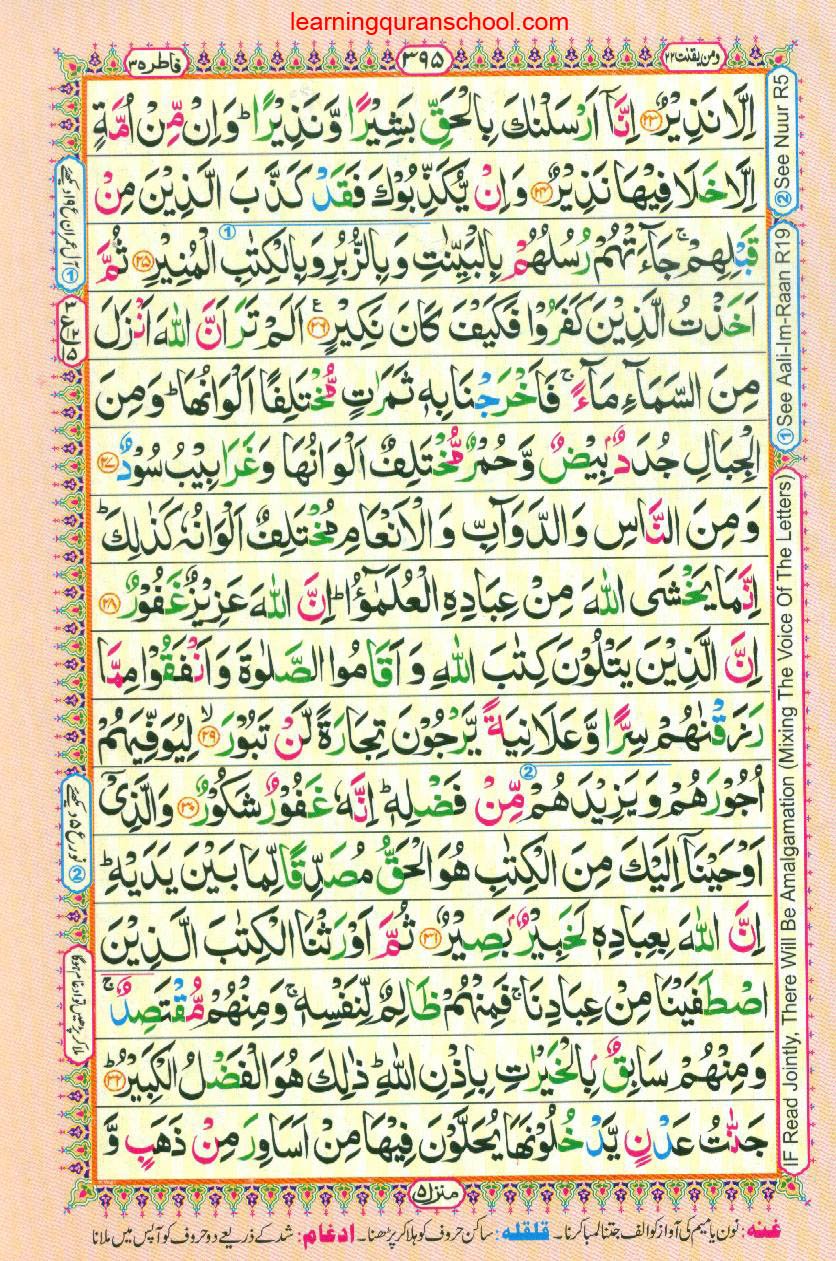 learningquranschool.com
ومن یقنت ۲۲
۳۹۵
فاطر ۳۵
اِلَّا نَذِیْرٌ ﴿۲۳﴾ اِنَّاۤ اَرْسَلْنٰكَ بِالْحَقِّ بَشِیْرًا وَّنَذِیْرًا ؕ وَاِنْ مِّنْ اُمَّةٍ
اِلَّا خَلَا فِیْهَا نَذِیْرٌ ﴿۲۴﴾ وَاِنْ یُّكَذِّبُوْكَ فَقَدْ كَذَّبَ الَّذِیْنَ مِنْ
قَبْلِهِمْ ۚ جَآءَتْهُمْ رُسُلُهُمْ بِالْبَیِّنٰتِ وَبِالزُّبُرِ وَبِالْكِتٰبِ الْمُنِیْرِ ﴿۲۵﴾ ثُمَّ
اَخَذْتُ الَّذِیْنَ كَفَرُوْا فَكَیْفَ كَانَ نَكِیْرِ ﴿۲۶﴾ اَلَمْ تَرَ اَنَّ اللّٰهَ اَنْزَلَ
مِنَ السَّمَآءِ مَآءً ۚ فَاَخْرَجْنَا بِهٖ ثَمَرٰتٍ مُّخْتَلِفًا اَلْوَانُهَا ؕ وَمِنَ
الْجِبَالِ جُدَدٌۢ بِیْضٌ وَّحُمْرٌ مُّخْتَلِفٌ اَلْوَانُهَا وَغَرَابِیْبُ سُوْدٌ ﴿۲۷﴾
وَمِنَ النَّاسِ وَالدَّوَآبِّ وَالْاَنْعَامِ مُخْتَلِفٌ اَلْوَانُهٗ كَذٰلِكَ ؕ
اِنَّمَا یَخْشَی اللّٰهَ مِنْ عِبَادِهِ الْعُلَمٰٓؤُا ؕ اِنَّ اللّٰهَ عَزِیْزٌ غَفُوْرٌ ﴿۲۸﴾
اِنَّ الَّذِیْنَ یَتْلُوْنَ كِتٰبَ اللّٰهِ وَاَقَامُوا الصَّلٰوةَ وَاَنْفَقُوْا مِمَّا
رَزَقْنٰهُمْ سِرًّا وَّعَلَانِیَةً یَّرْجُوْنَ تِجَارَةً لَّنْ تَبُوْرَ ۙ ﴿۲۹﴾ لِیُوَفِّیَهُمْ
اُجُوْرَهُمْ وَیَزِیْدَهُمْ مِّنْ فَضْلِهٖ ؕ اِنَّهٗ غَفُوْرٌ شَكُوْرٌ ﴿۳۰﴾ وَالَّذِیْۤ
اَوْحَیْنَاۤ اِلَیْكَ مِنَ الْكِتٰبِ هُوَ الْحَقُّ مُصَدِّقًا لِّمَا بَیْنَ یَدَیْهِ ؕ
اِنَّ اللّٰهَ بِعِبَادِهٖ لَخَبِیْرٌۢ بَصِیْرٌ ﴿۳۱﴾ ثُمَّ اَوْرَثْنَا الْكِتٰبَ الَّذِیْنَ
اصْطَفَیْنَا مِنْ عِبَادِنَا ۚ فَمِنْهُمْ ظَالِمٌ لِّنَفْسِهٖ ۚ وَمِنْهُمْ مُّقْتَصِدٌ ۚ
وَمِنْهُمْ سَابِقٌۢ بِالْخَیْرٰتِ بِاِذْنِ اللّٰهِ ؕ ذٰلِكَ هُوَ الْفَضْلُ الْكَبِیْرُ ؕ ﴿۳۲﴾
جَنّٰتُ عَدْنٍ یَّدْخُلُوْنَهَا یُحَلَّوْنَ فِیْهَا مِنْ اَسَاوِرَ مِنْ ذَهَبٍ وَّ
② See Nuur R5
① See Aali-Im-Raan R19
IF Read Jointly, There Will Be Amalgamation (Mixing The Voice Of The Letters)
① آل عمران ع ۱۹ دیکھئے
② نور ع ۵ دیکھئے
ملا کر پڑھیں تو ادغام ہوگا
منزل ۵
غنه: نون یا میم کی آواز کو الف جتنا لمبا کرنا۔ قلقله: ساکن حروف کو ہلا کر پڑھنا۔ ادغام: شد کے ذریعے دو حروف کو آپس میں ملانا